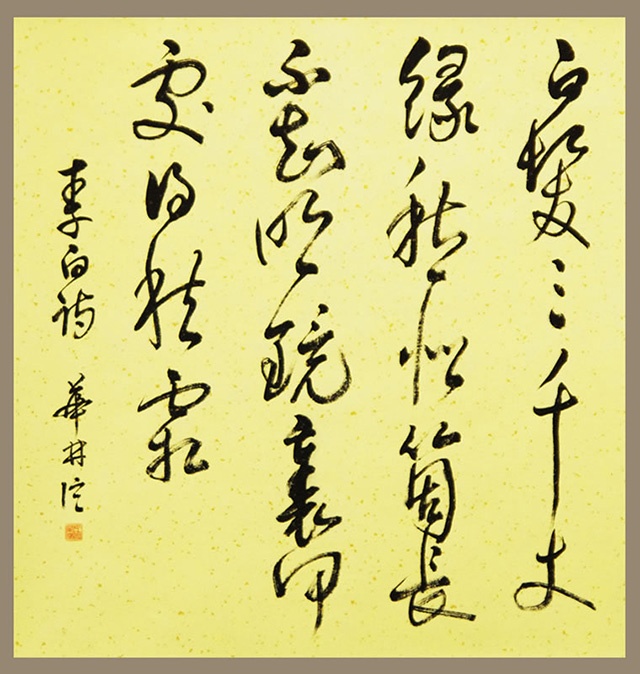 白髮三千丈
緣愁似箇長
不知明鏡裏何
處得秋霜
李白詩 華林